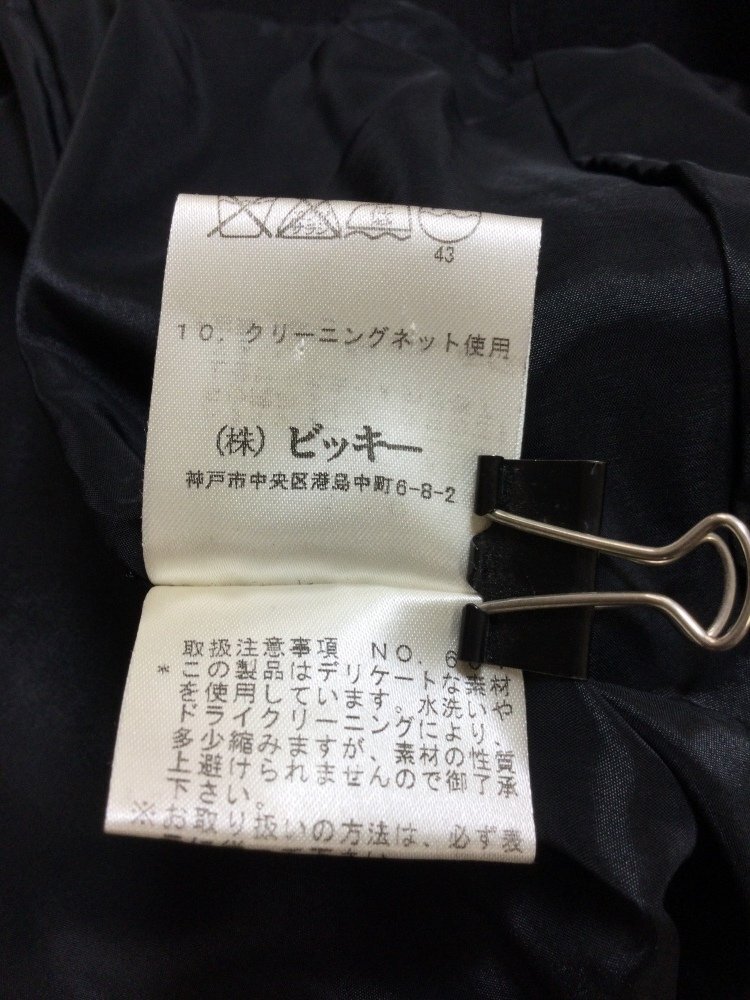 サラシ
43
10. クリーニングネット使用
(株) ビッキー
神戸市中央区港島中町6-8-2
取扱注意事項 NO.
* この製品はデリケートな素材
を使用しています。水洗い、や、
ドライクリーニングにより、
多少縮みますが、素材の性質
上避けられませんので御了承
下さい。
※お取り扱いの方法は、必ず表